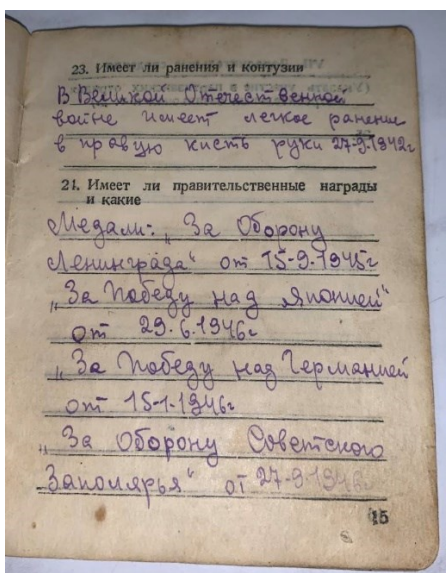 23. Имеет ли ранения и контузии
В Великой Отечественной
войне имеет легкое ранение
в правую кисть руки 27-9-1942г
24. Имеет ли правительственные награды
и какие
Медали: „За Оборону
Ленинграда“ от 15-9-1945г
„За Победу над Японией“
от 29-6-1946г
„За Победу над Германией
от 15-1-1946г
„За Оборону Советского
Заполярья“ от 27-9-
15